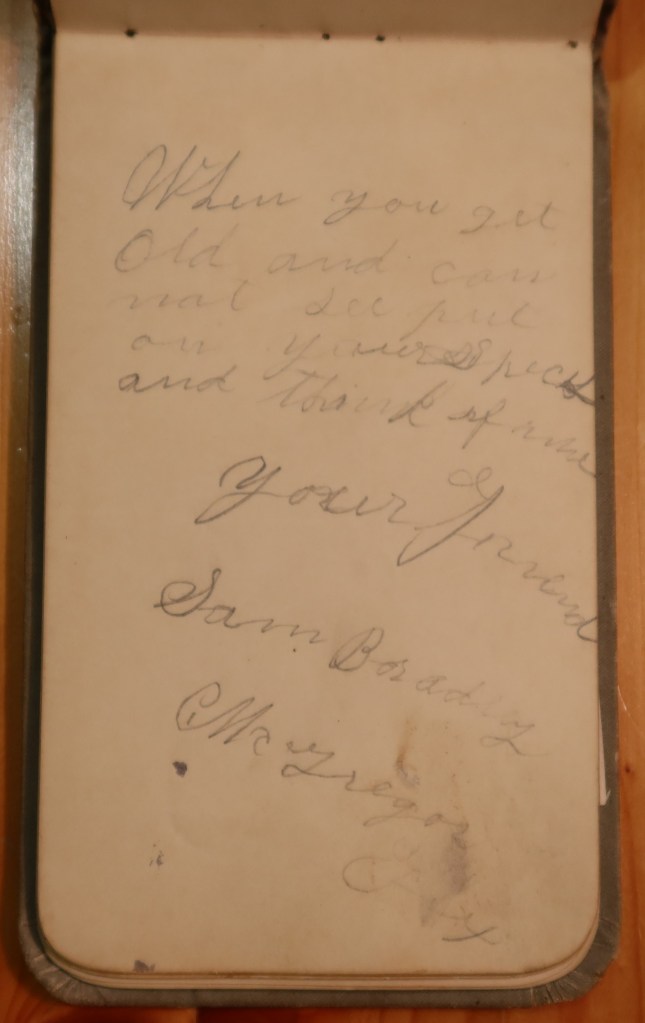 When you get
Old and can
not see put
on your Specks
and think of me
Your Friend
Sam Bradley
McGregor